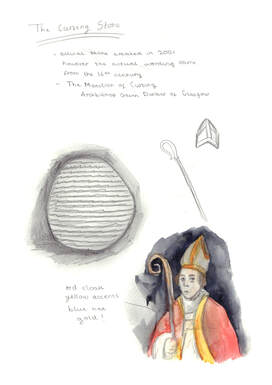 The Cursing Stone
- actual stone created in 2001
however the actual wording came
from the 16th century
- The Monition of Cursing
Archbishop Gavin Dunbar of Glasgow
red cloak
yellow accents
blue
gold!